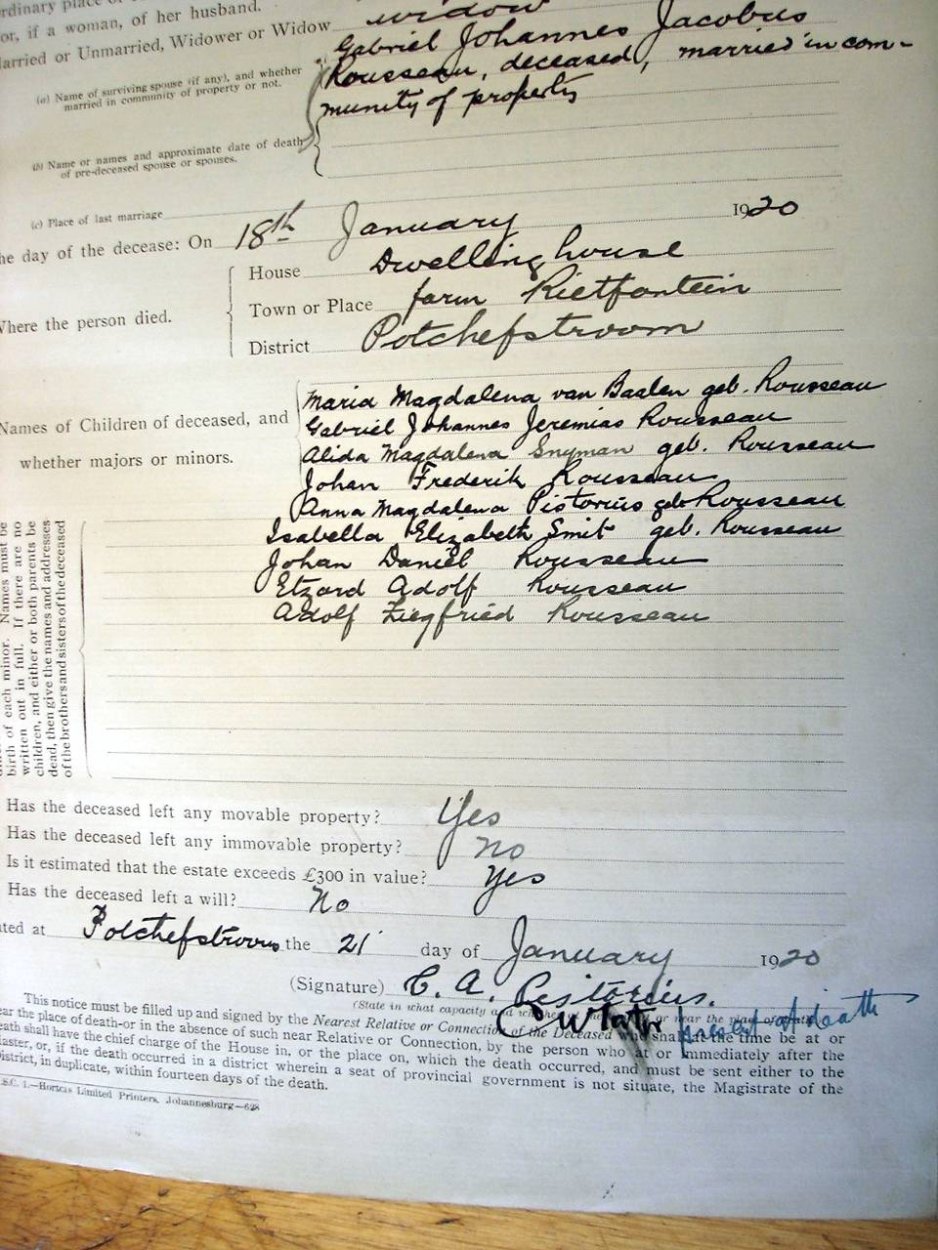 rdinary place of
or, if a woman, of her husband.
arried or Unmarried, Widower or Widow widow
(a) Name of surviving spouse (if any), and whether married in community of property or not.
Gabriel Johannes Jacobus
Rousseau, deceased, married in com-
munity of property
(b) Name or names and approximate date of death of pre-deceased spouse or spouses.
(c) Place of last marriage
he day of the decease: On 18th January 1920
House Dwelling house
Where the person died.
Town or Place farm Rietfontein
District Potchefstroom
Names of Children of deceased, and
whether majors or minors.
Maria Magdalena van Baalen geb. Rousseau
Gabriel Johannes Jeremias Rousseau
Alida Magdalena Snyman geb. Rousseau
Johan Frederik Rousseau
Anna Magdalena Pistorius geb Rousseau
Isabella Elizabeth Smit geb. Rousseau
Johan Daniel Rousseau
Etzard Adolf Rousseau
Adolf Ziegfried Rousseau
birth of each minor. Names must be
written out in full. If there are no
children, and either or both parents be
dead, then give the names and addresses
of the brothers and sisters of the deceased
Has the deceased left any movable property? Yes
Has the deceased left any immovable property? No
Is it estimated that the estate exceeds £300 in value? Yes
Has the deceased left a will? No
ted at Potchefstroom the 21 day of January 1920
(Signature) C. A. Pistorius.
(State in what capacity and
present at death
This notice must be filled up and signed by the Nearest Relative or Connection of the Deceased who shall at the time be at or
ear the place of death-or in the absence of such near Relative or Connection, by the person who at or immediately after the
eath shall have the chief charge of the House in, or the place on, which the death occurred, and must be sent either to the
aster, or, if the death occurred in a district wherein a seat of provincial government is not situate, the Magistrate of the
istrict, in duplicate, within fourteen days of the death.
S.C. 1.—Hortors Limited Printers, Johannesburg—628